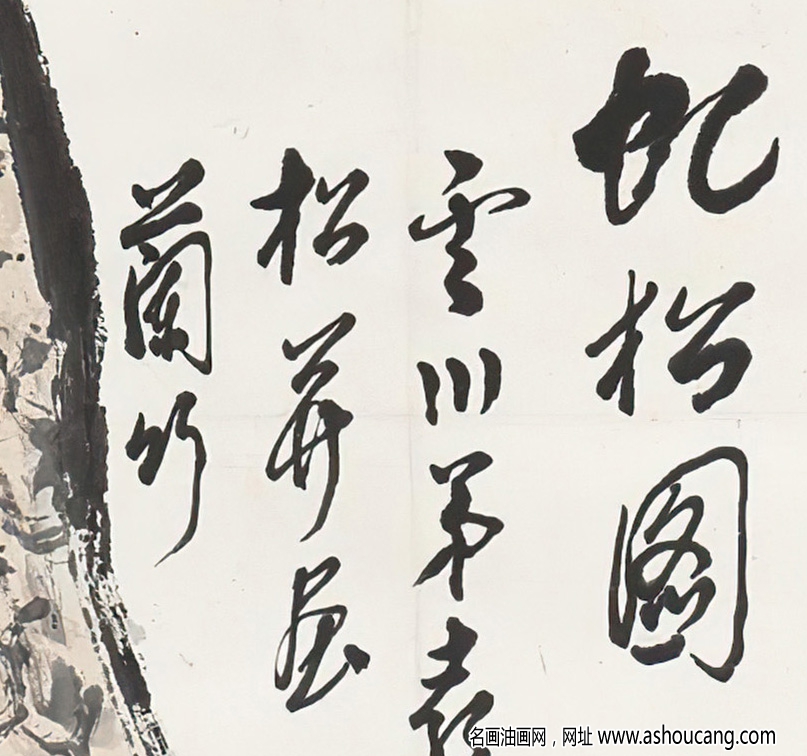 虬松图
雲川弟袁
松并画
蘭竹
名画油画网，网址 www.ashoucang.com